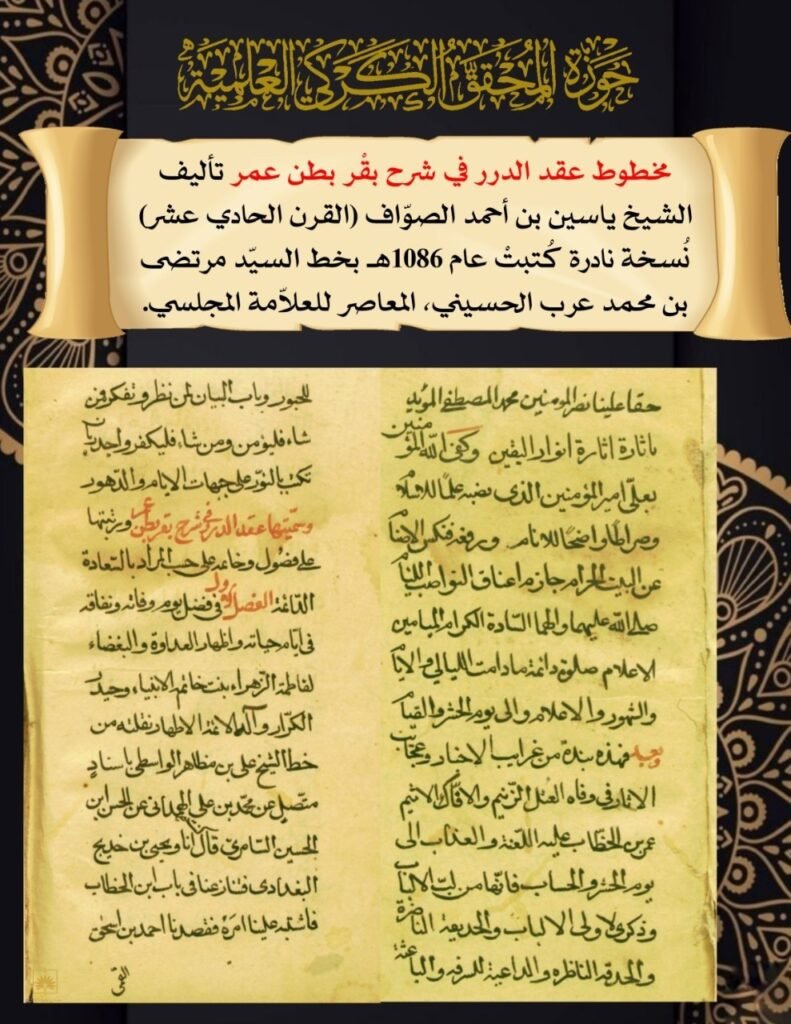 حَوْزَةُ المُحَقِّقِ الكَرَكِيِّ العِلْمِيَّةِ
مخطوط عقد الدرر في شرح بقْر بطن عمر تأليف
الشيخ ياسين بن أحمد الصوّاف (القرن الحادي عشر)
نُسخة نادرة كُتبتْ عام 1086هـ بخط السيّد مرتضى
بن محمد عرب الحسيني، المعاصر للعلاّمة المجلسي.
حقا علينا نصر المؤمنين محمد المصطفى المؤيد
باثارة اثارة انوار اليقين وكفى الله المؤمنين
بعلي امير المؤمنين الذي نصبه علما للاسلام
وصراطا واضحا للانام ورفعه فنكس الاصنام
عن البيت الحرام جازم اعناق النواصب اللئام
صلى الله عليهما والهما السادة الكرام الميامين
الاعلام صلوة دائمة ما دامت الليالي والايام
والشهور والاعلام والى يوم الحشر والقيام
وبعد فهذه نبذة من غرايب الاخبار وعجايب
الاثار في وفاة العتل الزنيم والافاك الاثيم
عمر بن الخطاب عليه اللعنة والعذاب الى
يوم الحشر والحساب فانها من لب الالباب
وذكرى لاولى الالباب والحديقة الناضرة
والحدقة الناظرة والداعية للسرفه والباعثة
للحبور وباب البيان لمن نظر وتفكر فمن
شاء فليؤمن ومن شاء فليكفر واجدر بان
تكتب بالنور على جبهات الايام والدهور
وسميتها عقد الدرر في شرح بقر بطن عمر ورتبتها
على فصول وخاتمة على حسب المراد بالسعادة
الدائمة الفصل الاول في فضل يوم وفاته ونفاقه
في ايام حياته واظهار العداوة والبغضاء
لفاطمة الزهراء بنت خاتم الانبياء وحيدر
الكرار وآله الائمة الاطهار نقلته من
خط الشيخ علي بن مظاهر الواسطي باسناد
متصل عن محمد بن علي الهمداني عن الحسن ابن
الحسين السامري قال انا ويحيى بن خديج
البغدادي فتنازعنا في باب ابن الخطاب
فاشتبه علينا امره فقصدنا احمد بن اسحق
القمي